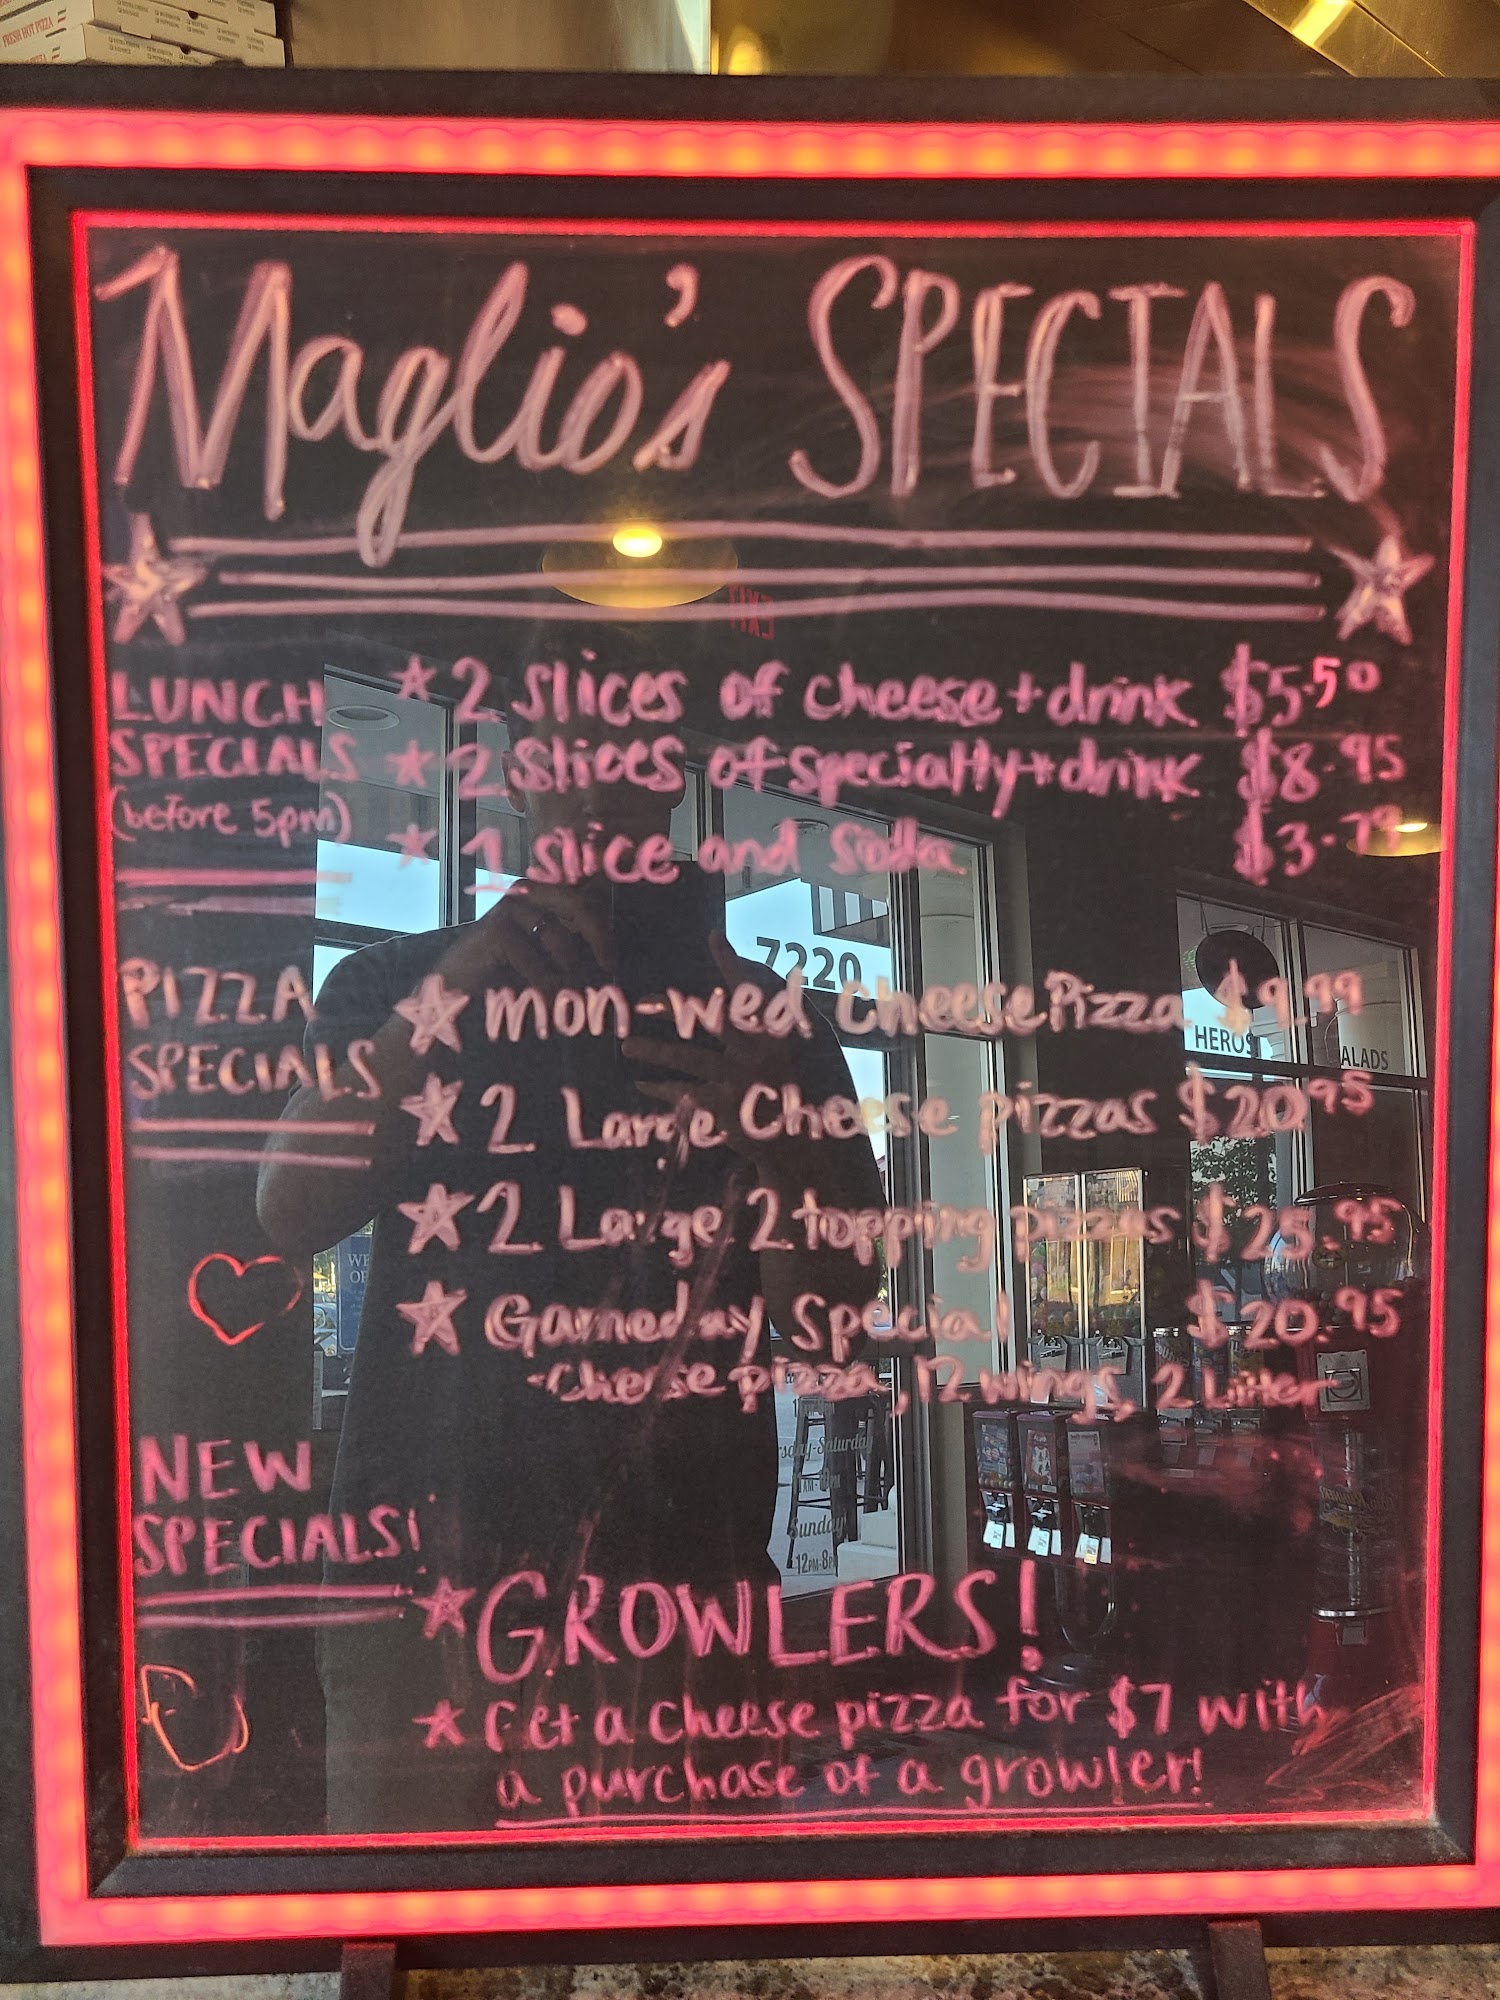 FRESH HOT PIZZA
Maglio's SPECIALS
LUNCH
SPECIALS
(before 5pm)
2 slices of cheese + drink $5.50
2 slices of specialty + drink $8.95
1 slice and soda $3.79
PIZZA
SPECIALS
mon-wed Cheese Pizza $9.99
2 Large Cheese pizzas $20.95
2 Large 2 topping pizzas $25.95
Gameday Special $20.95
-Cheese pizza, 12 wings, 2 Liter
NEW
SPECIALS!
GROWLERS!
Get a cheese pizza for $7 with
a purchase of a growler!
EXIT
7220
HEROS
ALADS
Sunday
12PM-8PM